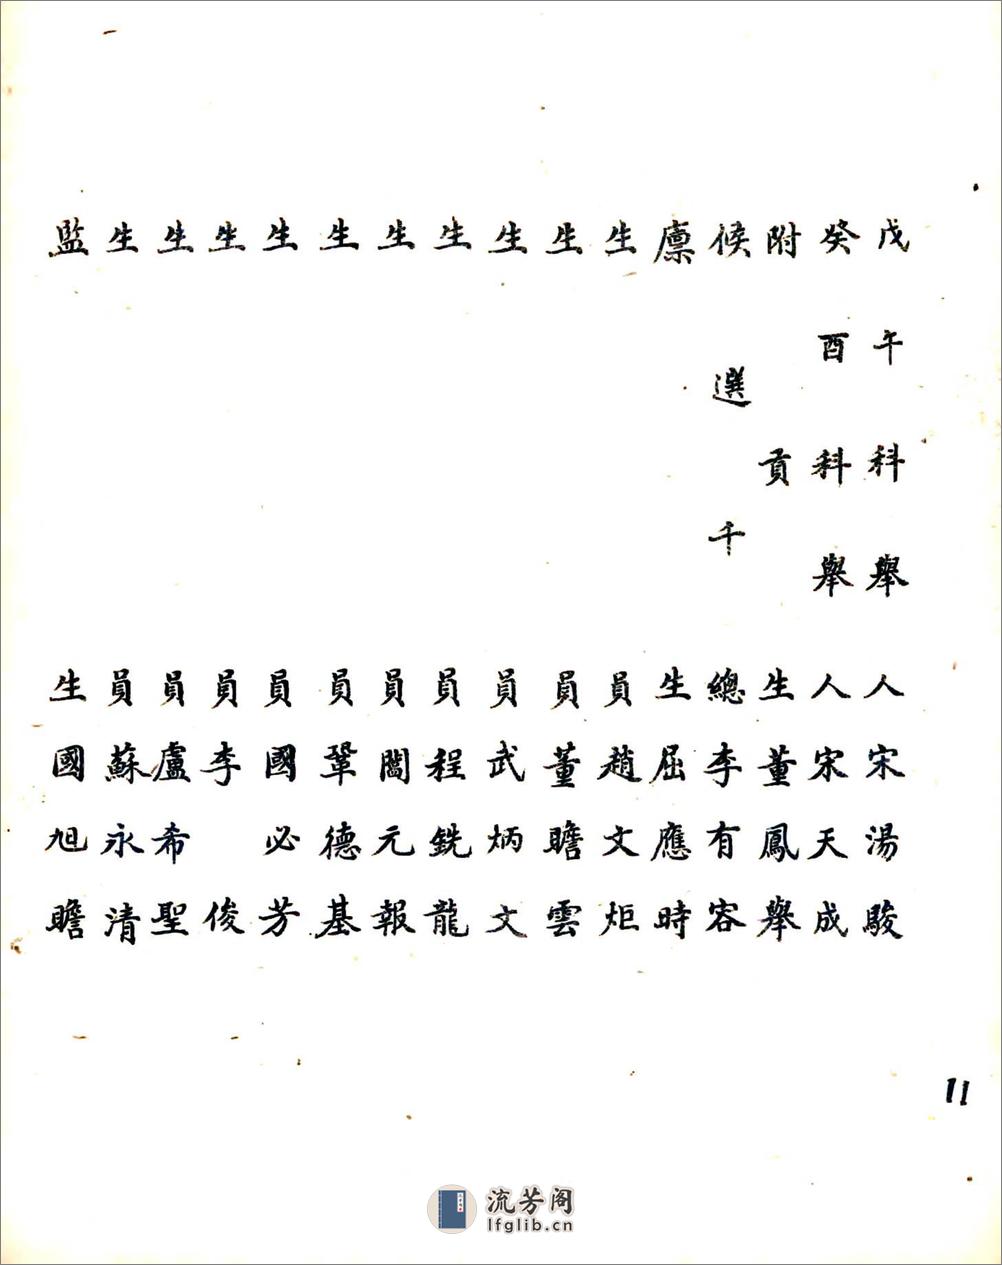 戊午科舉人宋湯駿
癸酉科舉人宋天成
附貢生董鳳舉
候選千總李有容
廩生屈應時
生員趙文炬
生員董瞻雲
生員武炳文
生員程銑龍
生員閻元報
生員鞏德基
生員國必芳
生員李俊
生員盧希聖
生員蘇永清
監生國旭瞻
11
流芳阁
lfglib.cn